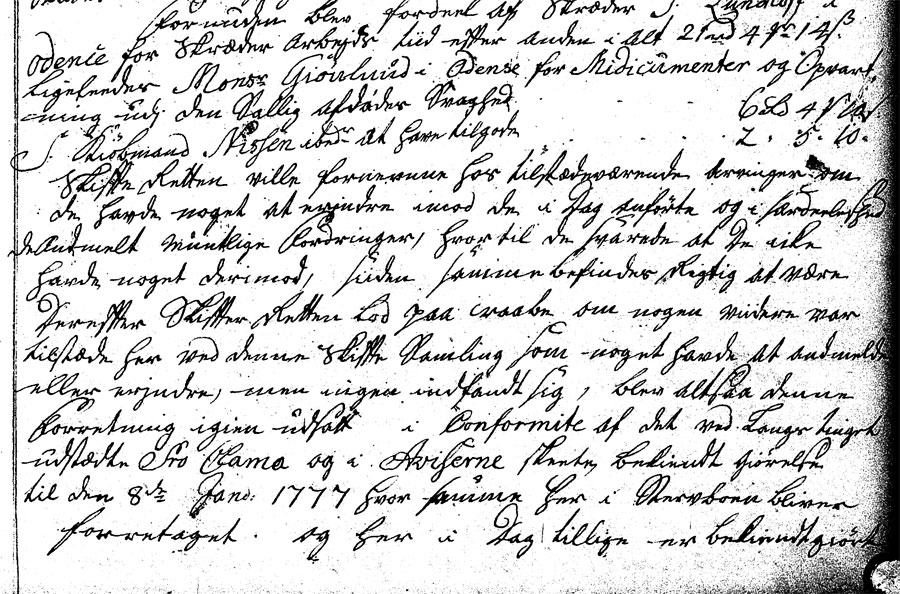 foruden blev fordret af Skræder S. Lundhoff i
Odense for Skræder Arbejde tiid efter anden i alt 21 rd 4 mk 14 s
Ligeleedes Monsr Grönlund i Odense for Midicamenter og Opvart-
-ning udj den Sallig afdødes Svaghed 6 rd 4 14
S. Kiöbmand Nissen ibdm at have tilgode 2 . 5 . 10 .
Skifte Retten ville fornemme hos tilstædeværende arvinger om
de havde noget at erindre imod de i Dag anførte og i særdeleshed
de Andmelt mundtlige Fordringer, hvortil de svarede at De icke
havde noget derimod, siiden samme befindes Rigtig at være
Derefter Skifte Retten Lod paa raabe om nogen viidere var
tilstæde her ved denne Skifte Samling som noget havde at andmelde
eller erindre, men ingen indfandt sig, blev altsaa denne
Forretning igien udsatt i Conformite af det ved Langs tinget
udstædte Pro Clama og i Aviserne skeete bekiendt giørelse
til den 8de Janv: 1777 hvor samme her i Stervboen bliver
foretaget . og her i Dag tillige er bekiendtgiørt